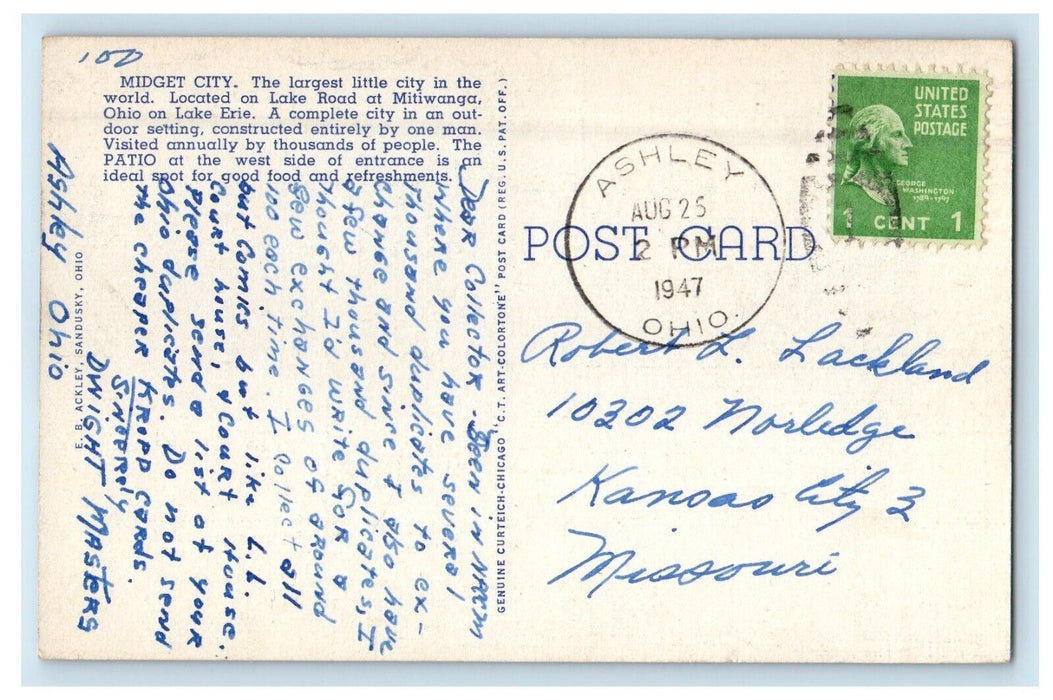 100
MIDGET CITY. The largest little city in the
world. Located on Lake Road at Mitiwanga,
Ohio on Lake Erie. A complete city in an out-
door setting, constructed entirely by one man.
Visited annually by thousands of people. The
PATIO at the west side of entrance is an
ideal spot for good food and refreshments.
Dear Collector - Seen in NAPCM
where you have several
thousand duplicates to ex-
change and since I also have
a few thousand duplicates, I
thought I'd write for a
few exchanges of around
100 each time. I collect all
but Comics but like L.L.
Court house, & Court House.
Please send a list of your
Ohio duplicates. Do not send
the cheaper KROPP Cards.
Sincerely
DWIGHT MASTERS
Ashley Ohio
E. B. ACKLEY, SANDUSKY, OHIO
GENUINE CURTEICH-CHICAGO "C.T. ART-COLORTONE" POST CARD (REG. U.S. PAT. OFF.)
POST CARD
ASHLEY
AUG 25
2 PM
1947
OHIO.
UNITED
STATES
POSTAGE
GEORGE
WASHINGTON
1789-1797
1 CENT 1
Robert L. Lackland
10302 Norledge
Kansas City 3
Missouri